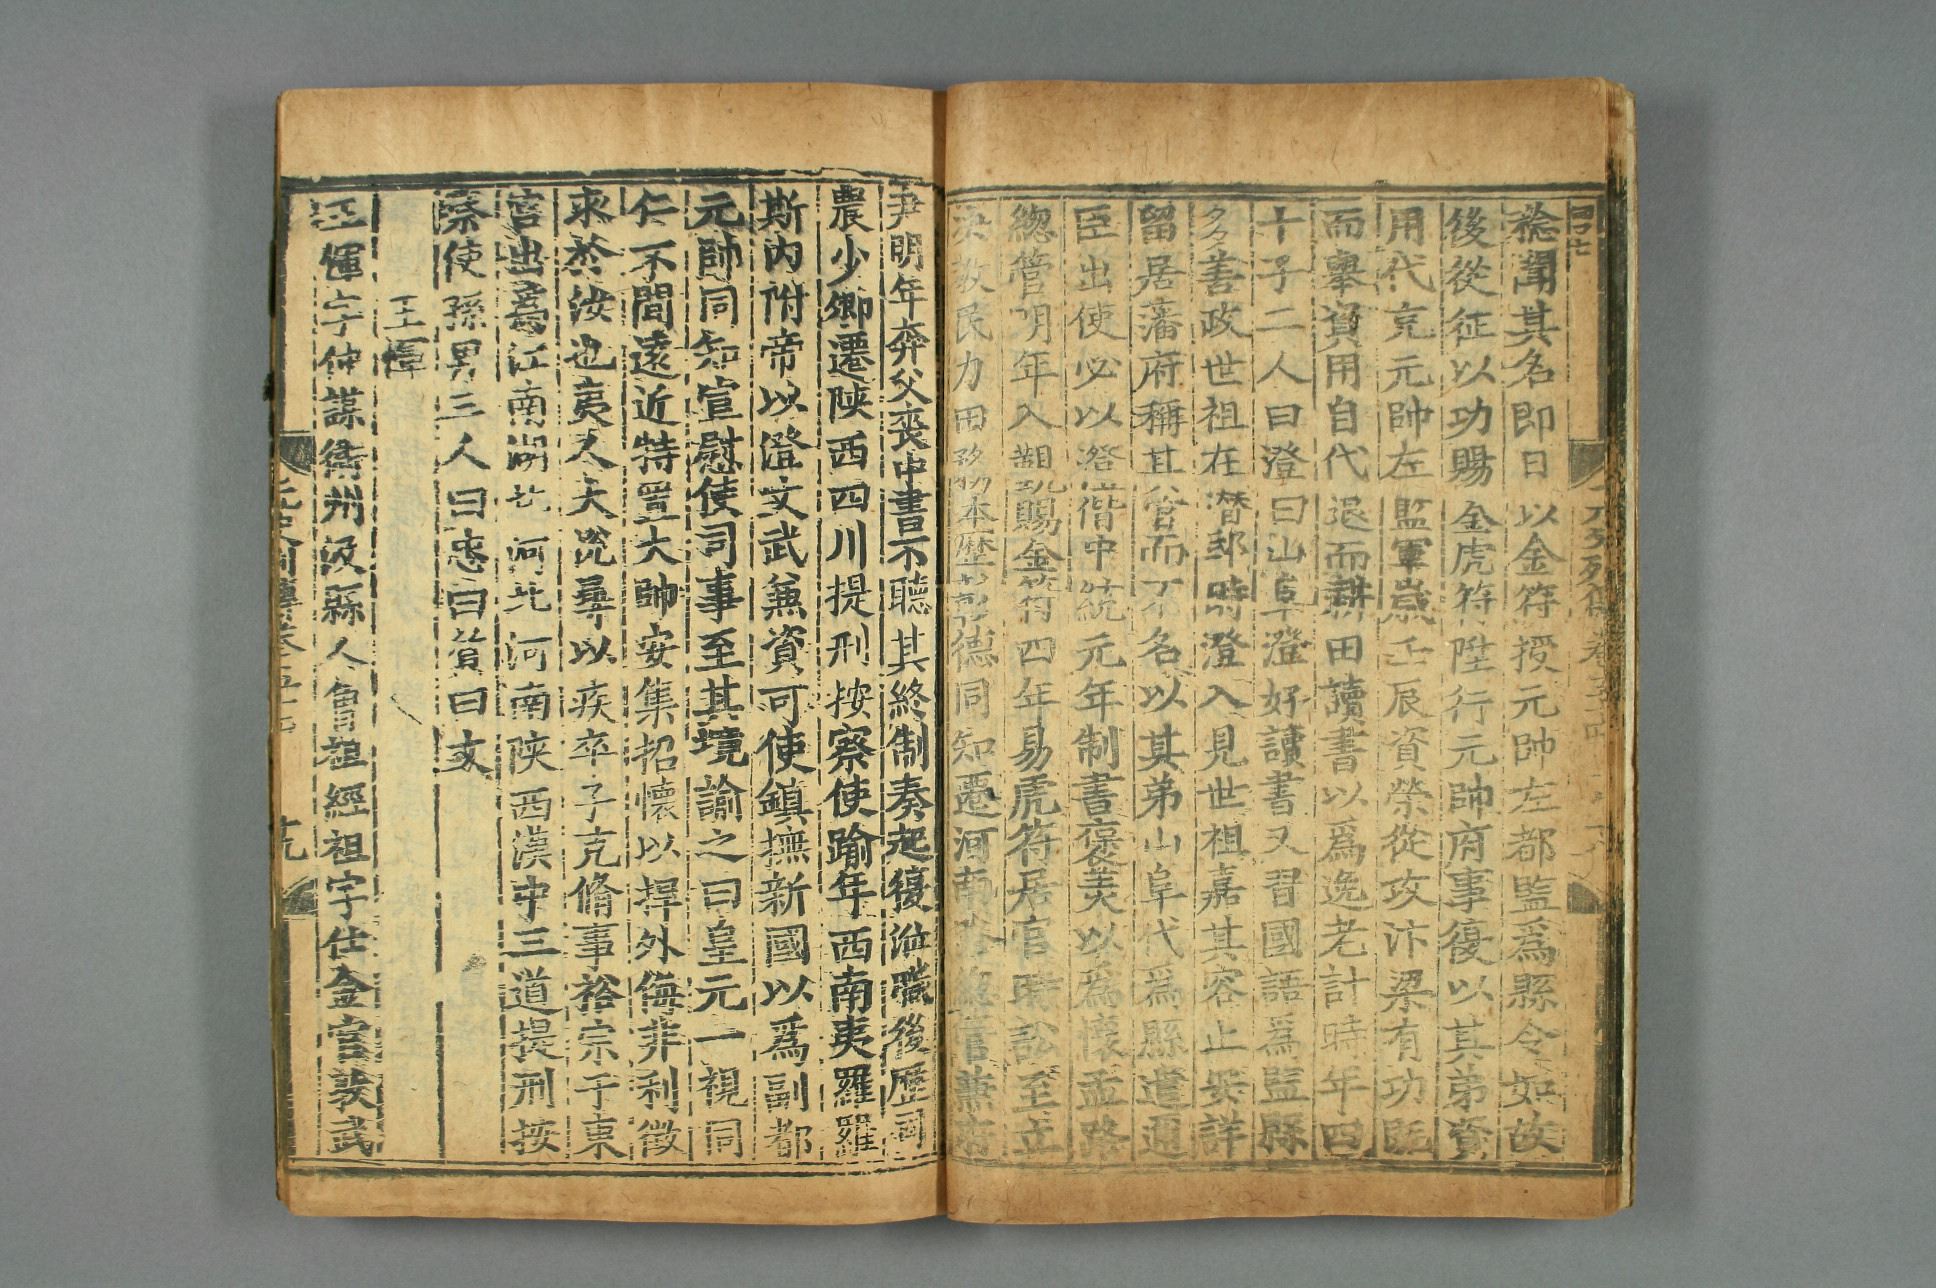 稔聞其名即日以金符授元帥左都監爲縣令如故
後從征以功賜金虎符陞行元帥府事復以其弟資
用代克元帥左監軍歳壬辰資榮從攻汴梁有功既
而舉資用自代退而耕田讀書以爲逸老計時年四
十子二人曰澄曰山阜澄好讀書又習國語爲監縣
多善政世祖在潜邸時澄入見世祖嘉其容止安詳
留居藩府稱其官而不名以其弟山阜代爲縣遣
臣出使必以澄偕中統元年制書襃美以爲懷孟路
緫管明年入覲賜金符四年易虎符居官時訟至立
決教民力田務本歴彰德同知遷河南路緫管兼府
尹明年奔父喪中書不聽其終制奏起復涖職後歴司
農少卿遷陕西四川提刑按察使踰年西南夷羅羅
斯内附帝以澄文武兼資可使鎮撫新國以爲副都
元帥同知宣慰使司事至其境諭之曰皇元一視同
仁不間遠近特置大帥安集招懷以捍外侮非利徴
求於汝也夷人大悦尋以疾卒子克脩事裕宗于東
宮出爲江南湖北河北河南陕西漢中三道提刑按
察使孫男三人曰忠曰質曰文
王惲
王惲字仲謀衛州汲縣人曾祖經祖宇仕金官敦武